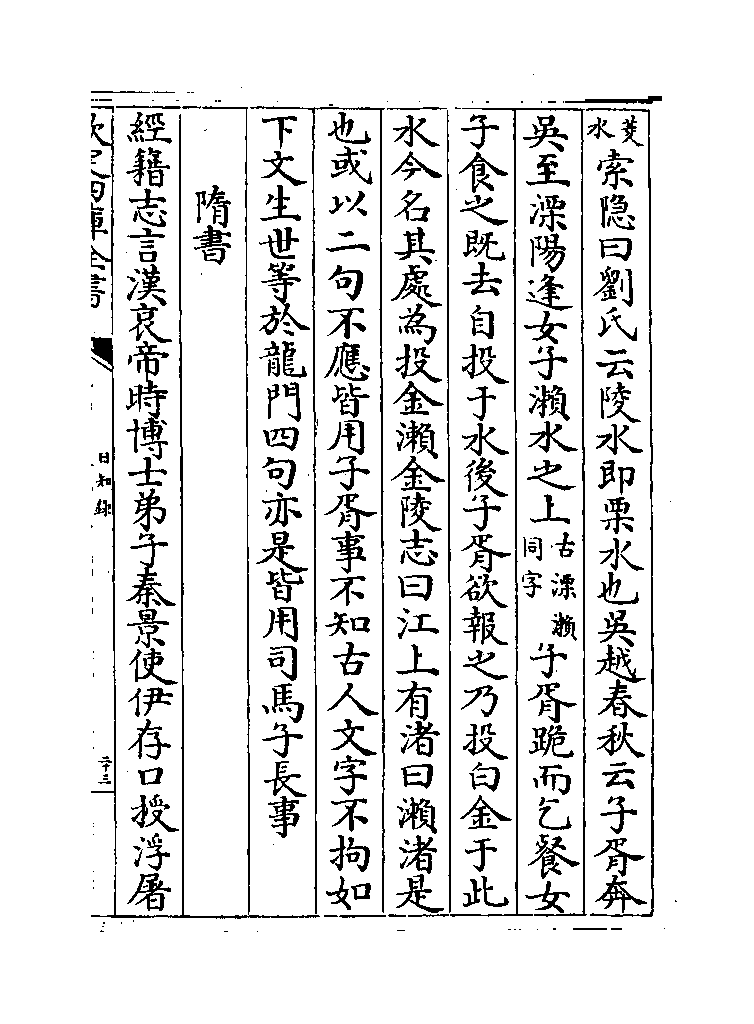 菱水索隐曰劉氏云陵水即栗水也吳越春秋云子胥奔
吳至溧陽逢女子瀨水之上古溧瀨同字子胥跪而乞餐女
子食之既去自投于水後子胥欲報之乃投白金于此
水今名其處為投金瀨金陵志曰江上有渚曰瀨渚是
也或以二句不應皆用子胥事不知古人文字不拘如
下文生世等於龍門四句亦是皆用司馬子長事
隋書
經籍志言漢哀帝時博士弟子秦景使伊存口授浮屠
欽定四庫全書
日知錄
二十三